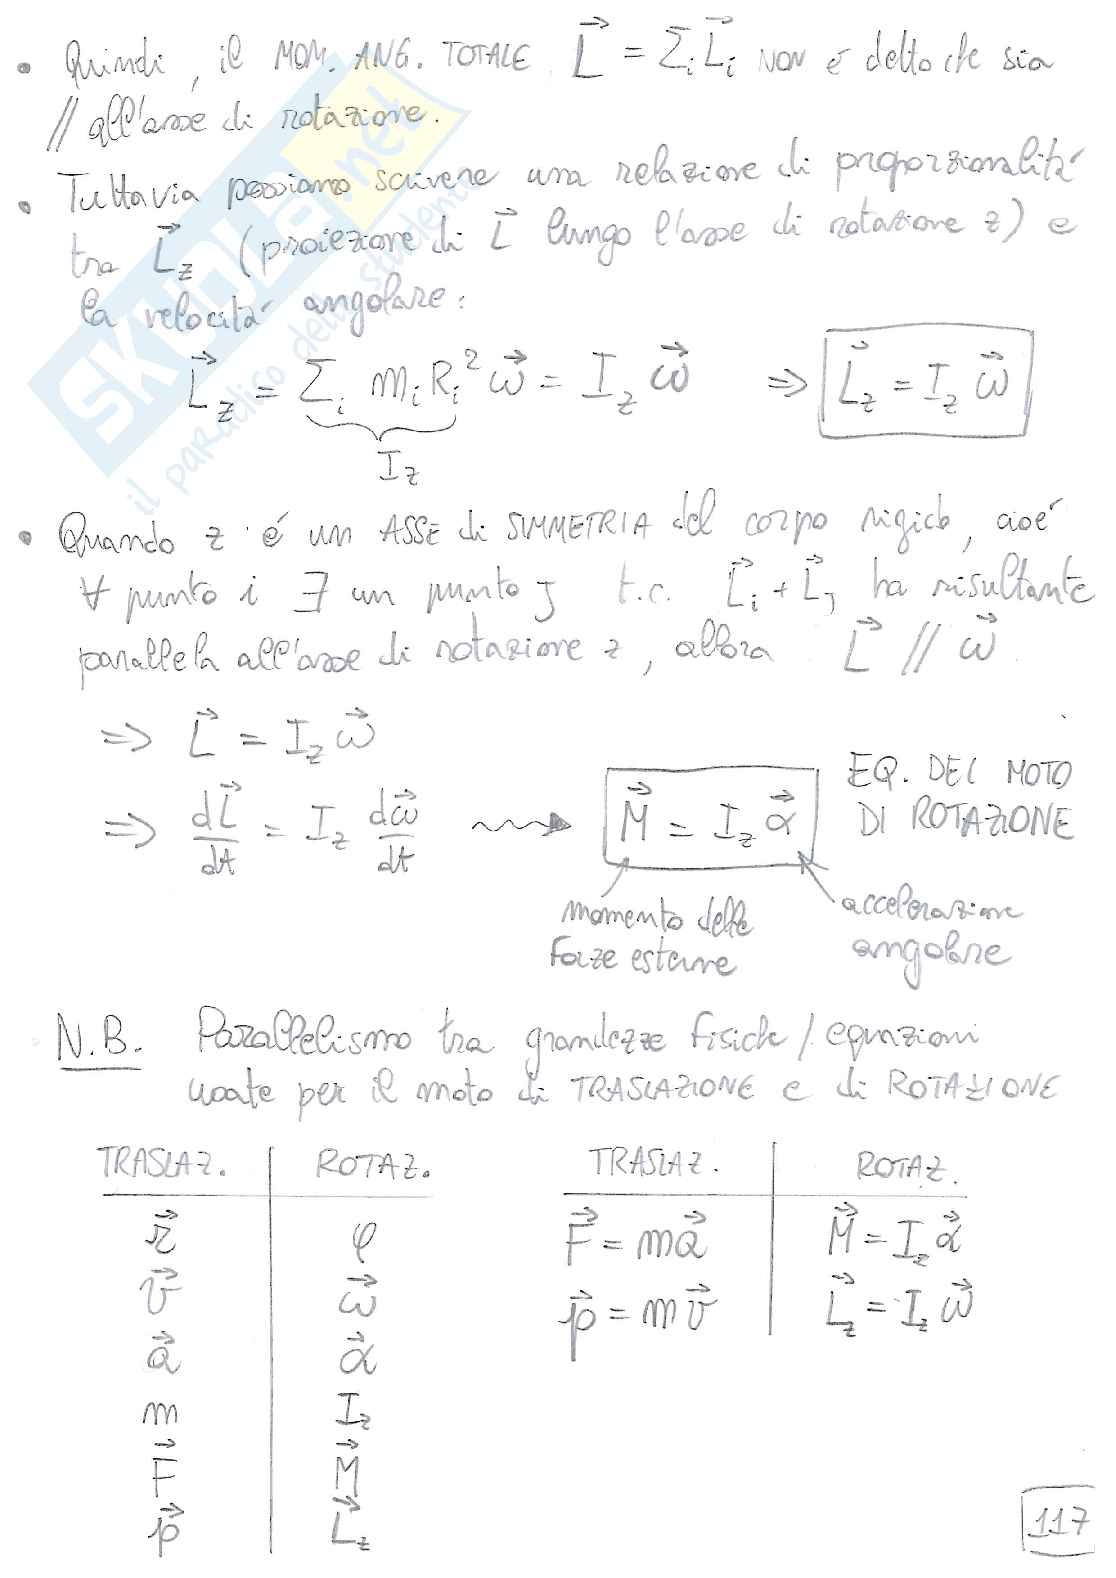 • Quindi, il MOM. ANG. TOTALE L⃗ = Σᵢ L⃗ᵢ NON é detto che sia
// all'asse di rotazione.
• Tuttavia possiamo scrivere una relazione di proporzionalitá
tra L⃗z (proiezione di L⃗ lungo l'asse di rotazione z) e
la velocitá angolare:
L⃗z = Σᵢ mᵢ Rᵢ² ω⃗ = Iz ω⃗ ⇒ L⃗z = Iz ω⃗
Iz
• Quando z é un ASSE di SIMMETRIA del corpo rigido, cioé
∀ punto i ∃ un punto j t.c. L⃗ᵢ + L⃗ⱼ ha risultante
parallela all'asse di rotazione z, allora L⃗ // ω⃗
⇒ L⃗ = Iz ω⃗
⇒ dL⃗/dt = Iz dω⃗/dt ⇝ M⃗ = Iz α⃗ EQ. DEL MOTO
DI ROTAZIONE
momento delle
forze esterne
accelerazione
angolare
N.B. Parallelismo tra grandezze fisiche / equazioni
usate per il moto di TRASLAZIONE e di ROTAZIONE
TRASLAZ. | ROTAZ.
r⃗ | φ
v⃗ | ω⃗
a⃗ | α⃗
m | Iz
F⃗ | M⃗
p⃗ | L⃗z
TRASLAZ. | ROTAZ.
F⃗ = m a⃗ | M⃗ = Iz α⃗
p⃗ = m v⃗ | L⃗z = Iz ω⃗
117
SKUOLA.net
il paradiso dello studente